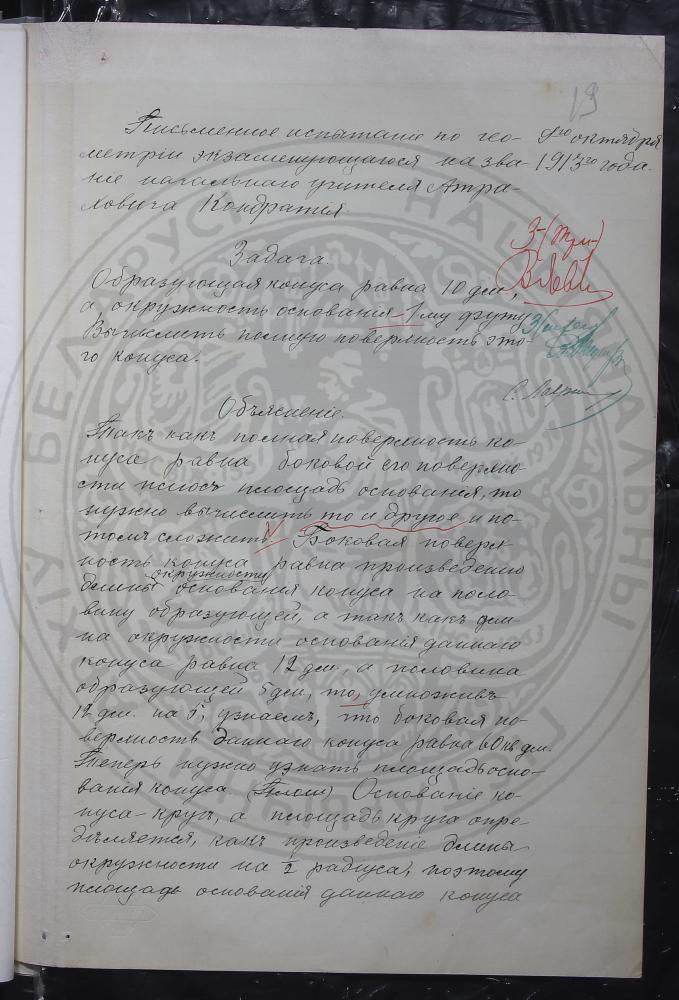 19
Письменное испытанiе по гео-
метрiи экзаменующагося на зва-
нiе начальнаго учителя Атра-
ховича Кондратiя.
9го октября
1913го года.
Задача.
Образующая конуса равна 10 дм.,
а окружность основанiя - 1му футу
Вычислить полную поверхность это-
го конуса.
3-(три-)
Объясненiе.
Такъ какъ полная поверхность ко-
нуса равна боковой его поверхно
сти плюсъ площадь основанiя, то
нужно вычислить то и другое и по-
томъ сложить. Боковая поверх
ность конуса равна произведенiю
длины окружности основанiя конуса на поло-
вину образующей, а такъ какъ дли-
на окружности основанiя даннаго
конуса равна 12 дм. а половина
образующей 5 дм., то, умноживъ
12 дм. на 5, узнаемъ, что боковая по-
верхность даннаго конуса равна 60 кв. дм.
Теперь нужно узнать площадь осно-
ванiя конуса (Площ) Основанiе ко-
нуса - кругъ, а площадь круга опре-
дѣляется, какъ произведенiе длины
окружности на 1/2 радiуса, поэтому
площадь основанiя даннаго конуса